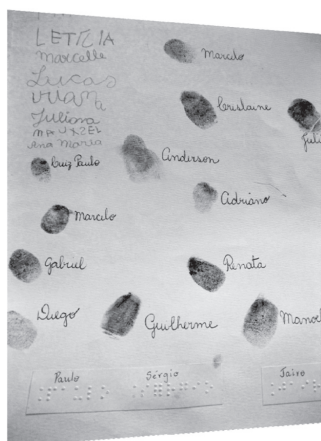 LETÍZIA
Marcelle
Lucas
Juliana
Ana Maria
Marcelo
Cruslaine
Juli
Luiz Paulo
Anderson
Adriano
Marcelo
Gabriel
Renata
Diego
Guilherme
Manoel
Paulo
Sérgio
Jairo